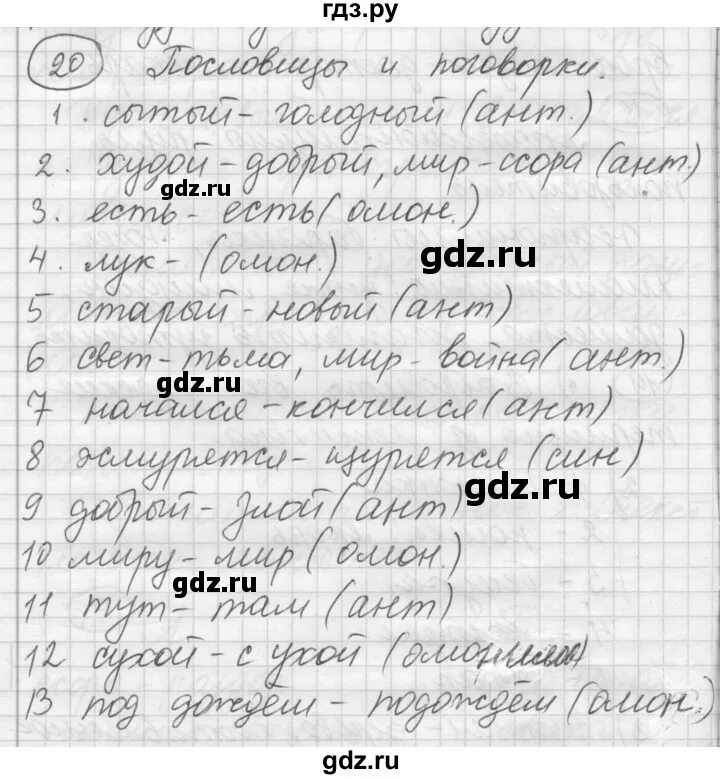 гдз.ру
20 Пословицы и поговорки.
1. сытый - голодный (ант.)
2. худой - добрый, мир - ссора (ант)
gdz.ru
3. есть - есть (омон.)
gdz.ru
4. лук - (омон.)
5 старый - новый (ант)
6 свет - тьма, мир - война (ант.)
gdz.ru
7 начался - кончился (ант)
8 жмурятся - щурятся (син)
gdz.ru
9 добрый - злой (ант)
10 миру - мир (омон.)
gdz.ru
11 тут - там (ант)
12 сухой - с ухой (омонимы)
13 под дождём - подождём (омон.)
gdz.ru